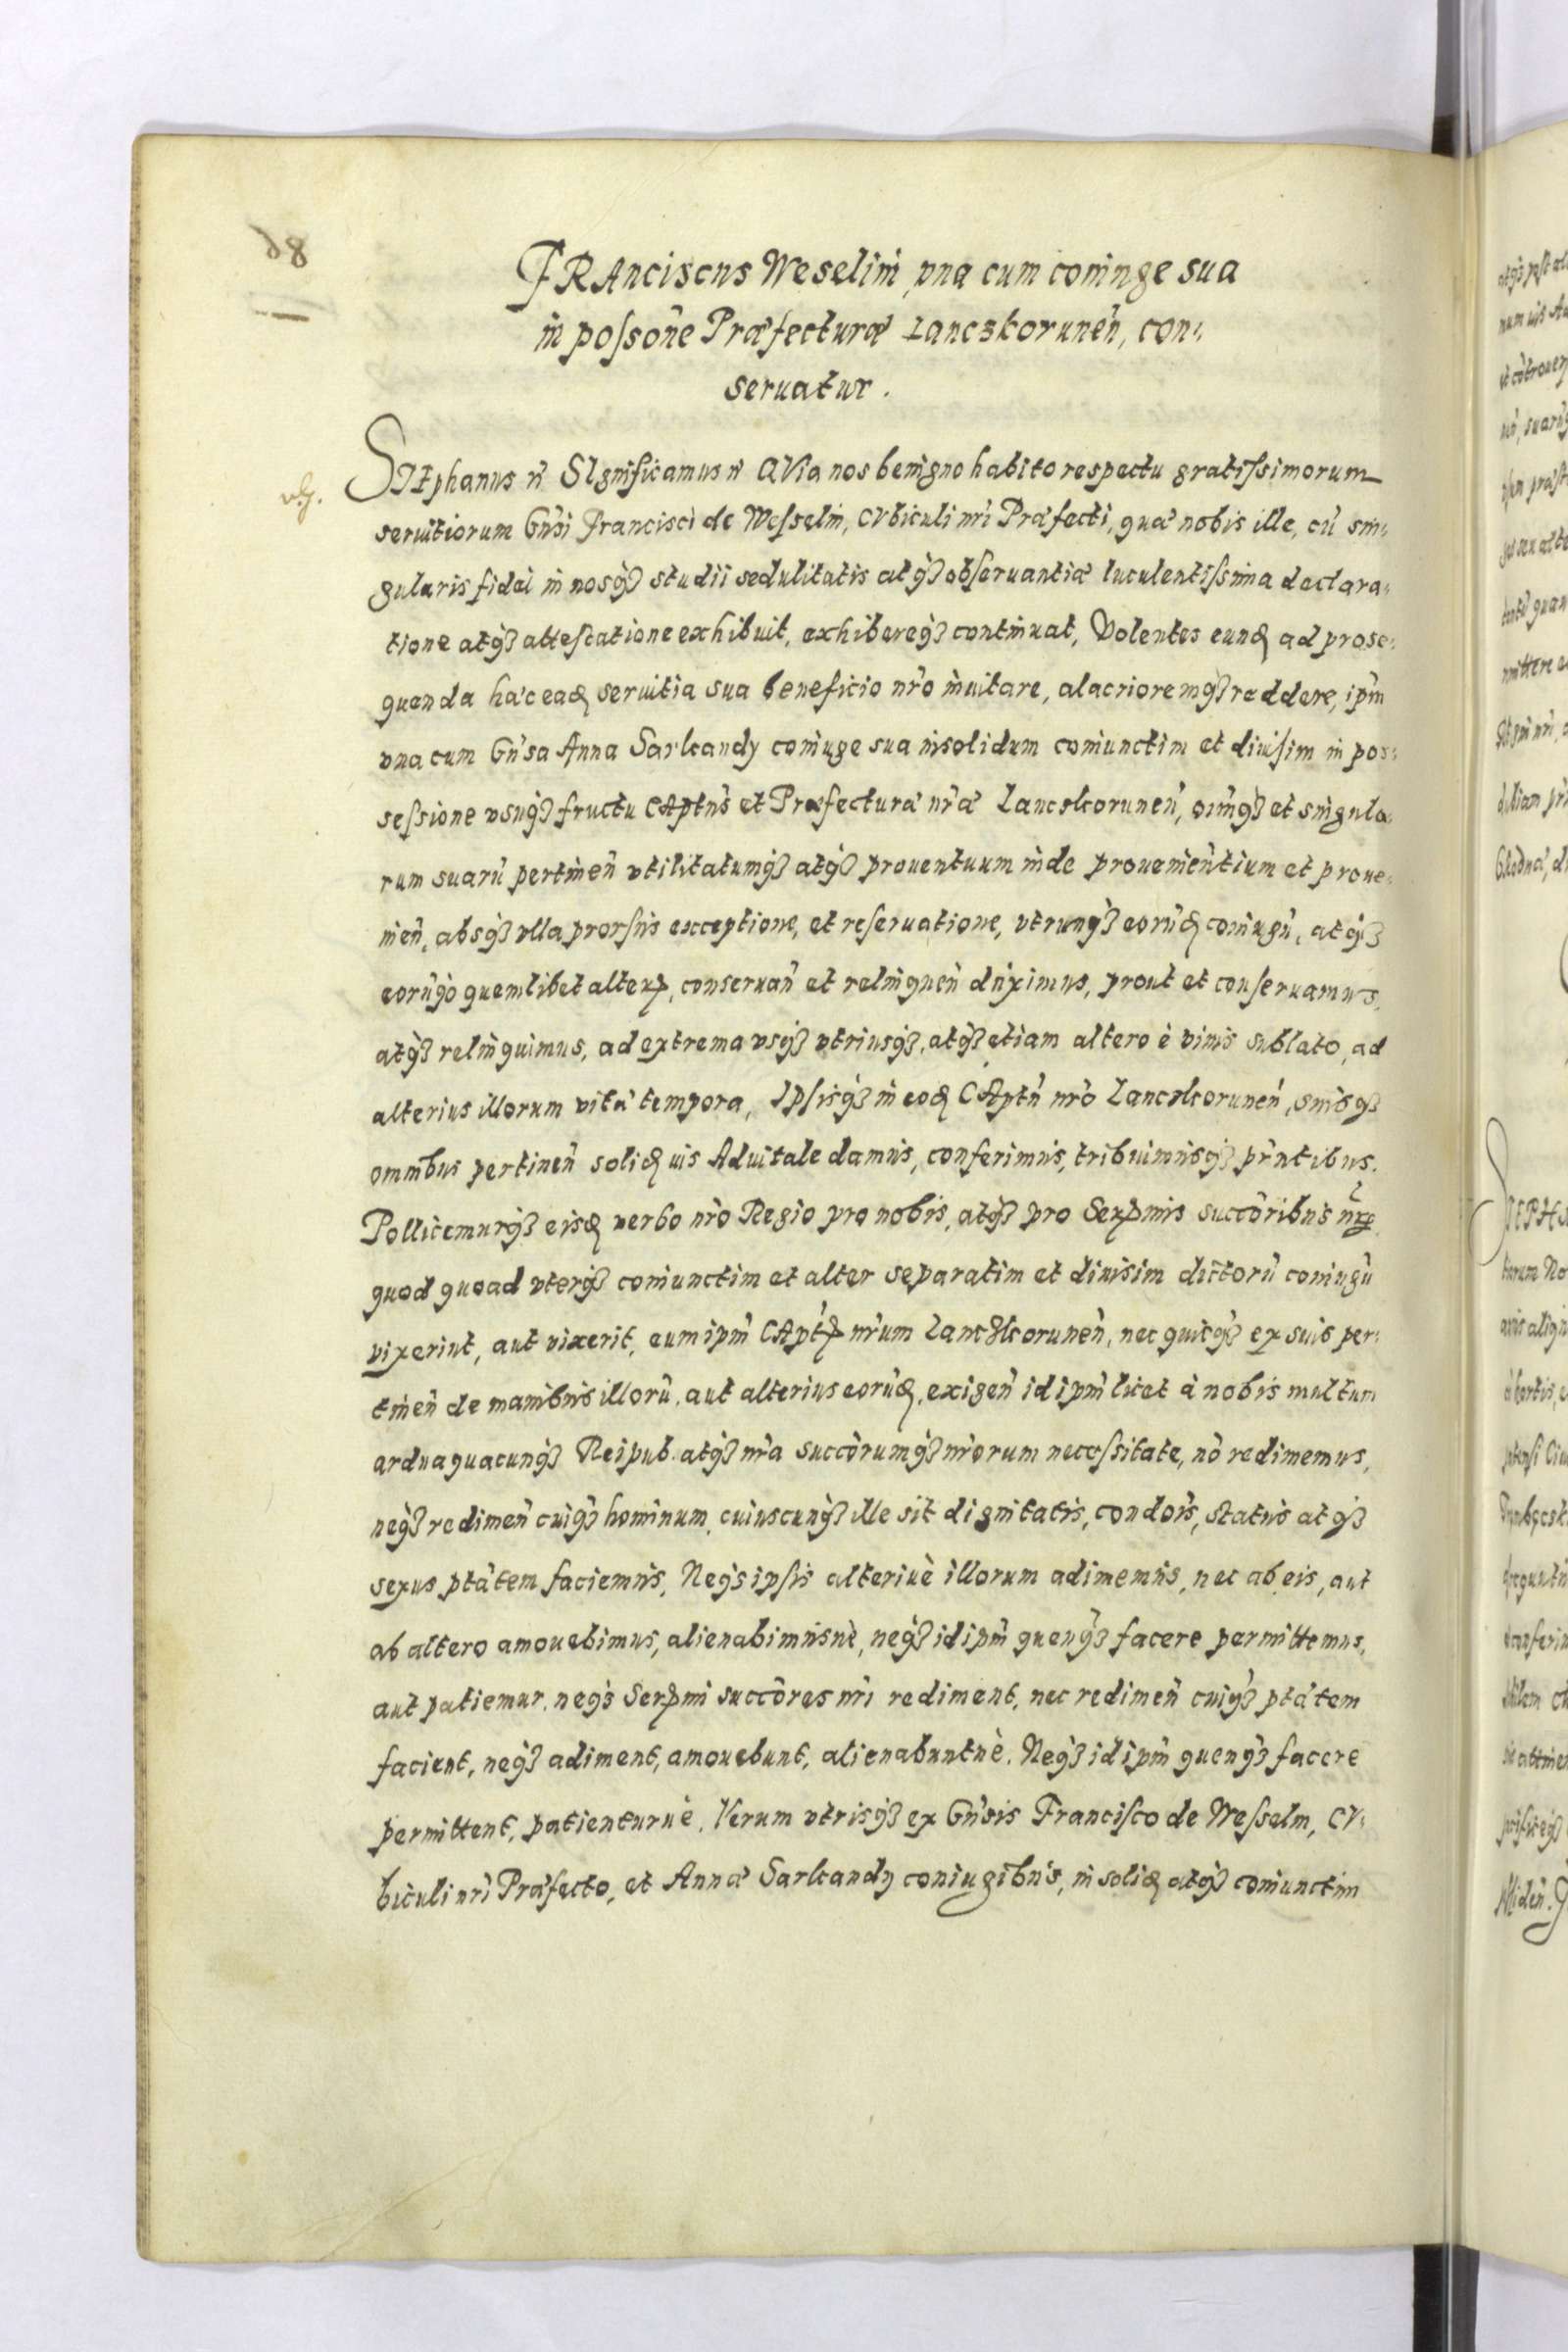 88
FRAnciscus Weselini vna cum coniuge sua
in possone Præfecturæ Lanczkorunen̄, con:
seruatur.
STEphanus etc̄ SIgnificamus etc̄ QVia nos benigno habito respectu gratissimorum
seruitiorum Gn̄si Francisci de Wesselin, CVbiculi nr̄i Præfecti, quæ nobis ille, cū sin:
gularis fidei in nosq3 studii sedulitatis atq3 obseruantiæ luculentissima declara:
tione atq3 attestatione exhibuit, exhibereq3 continuat, Volentes eund ad prose:
quenda hæc ead seruitia sua beneficio nr̄o inuitare, alacrioremq3 reddere, ipm̄
vna cum Gn̄sa Anna Sarkandy coniuge sua insolidum coniunctim et diuisim in pos:
sessione vsuq3 fructu CAptn̄s et Præfecturæ nr̄æ Lanczkorunen̄, oim̄q3 et singula:
rum suarū pertinen̄ vtilitatumq3 atq3 prouentuum inde prouenientium et proue:
nien̄, absq3 vlla prorsus exceptione, et reseruatione, vtrunq3 eorūd coniugū, atq3
eorūq3 quemlibet alter, conseruan̄ et relinquen̄ duximus, prout et conseruamus,
atq3 relinquimus, ad extrema vsq3 vtriusq3, atq3 etiam altero è viuis sublato, ad
alterius illorum vitæ tempora, Ipsisq3 in eod CAptn̄ nr̄o Lanczkorunen̄, suisq3
omnibus pertinen̄ solid uis Aduitale damus, conferimus, tribuimusq3 prn̄tibus.
Pollicemurq3 eisd verbo nr̄o Regio pro nobis, atq3 pro Sermis succōribus nr̄
quod quoad vterq3 coniunctim et alter separatim et diuisim dictorū coniugū
vixerint, aut vixerit, eum ipm̄ CApt nr̄um Lanczkorunen̄, nec quicq3 ex suis per:
tinen̄ de manibus illorū, aut alterius eorūd, exigen̄ id ipm̄ licet à nobis multum
ardua quacunq3 Reipub. atq3 nr̄a succōrumq3 nr̄orum necessitate, nō redimemus,
neq3 redimen̄ cuiq3 hominum, cuiuscunq3 ille sit dignitatis, condōis, status atq3
sexus ptātem faciemus, Neq3 ipsis alteriuè illorum adimemus, nec ab eis, aut
ab altero amouebimus, alienabimusuè, neq3 id ipm̄ quenq3 facere permittemus,
aut patiemur. neq3 Sermi succōres nr̄i rediment, nec redimen̄ cuiq3 ptātem
facient, neq3 adiment, amouebunt, alienabuntuè. Neq3 id ipm̄ quenq3 facere
permittent, patienturuè. Verum vtrisq3 ex Gn̄sis Francisco de Wesselin, CV:
biculi nr̄i Præfecto, et Annæ Sarkandy coniugibus, in solid atq3 coniunctim